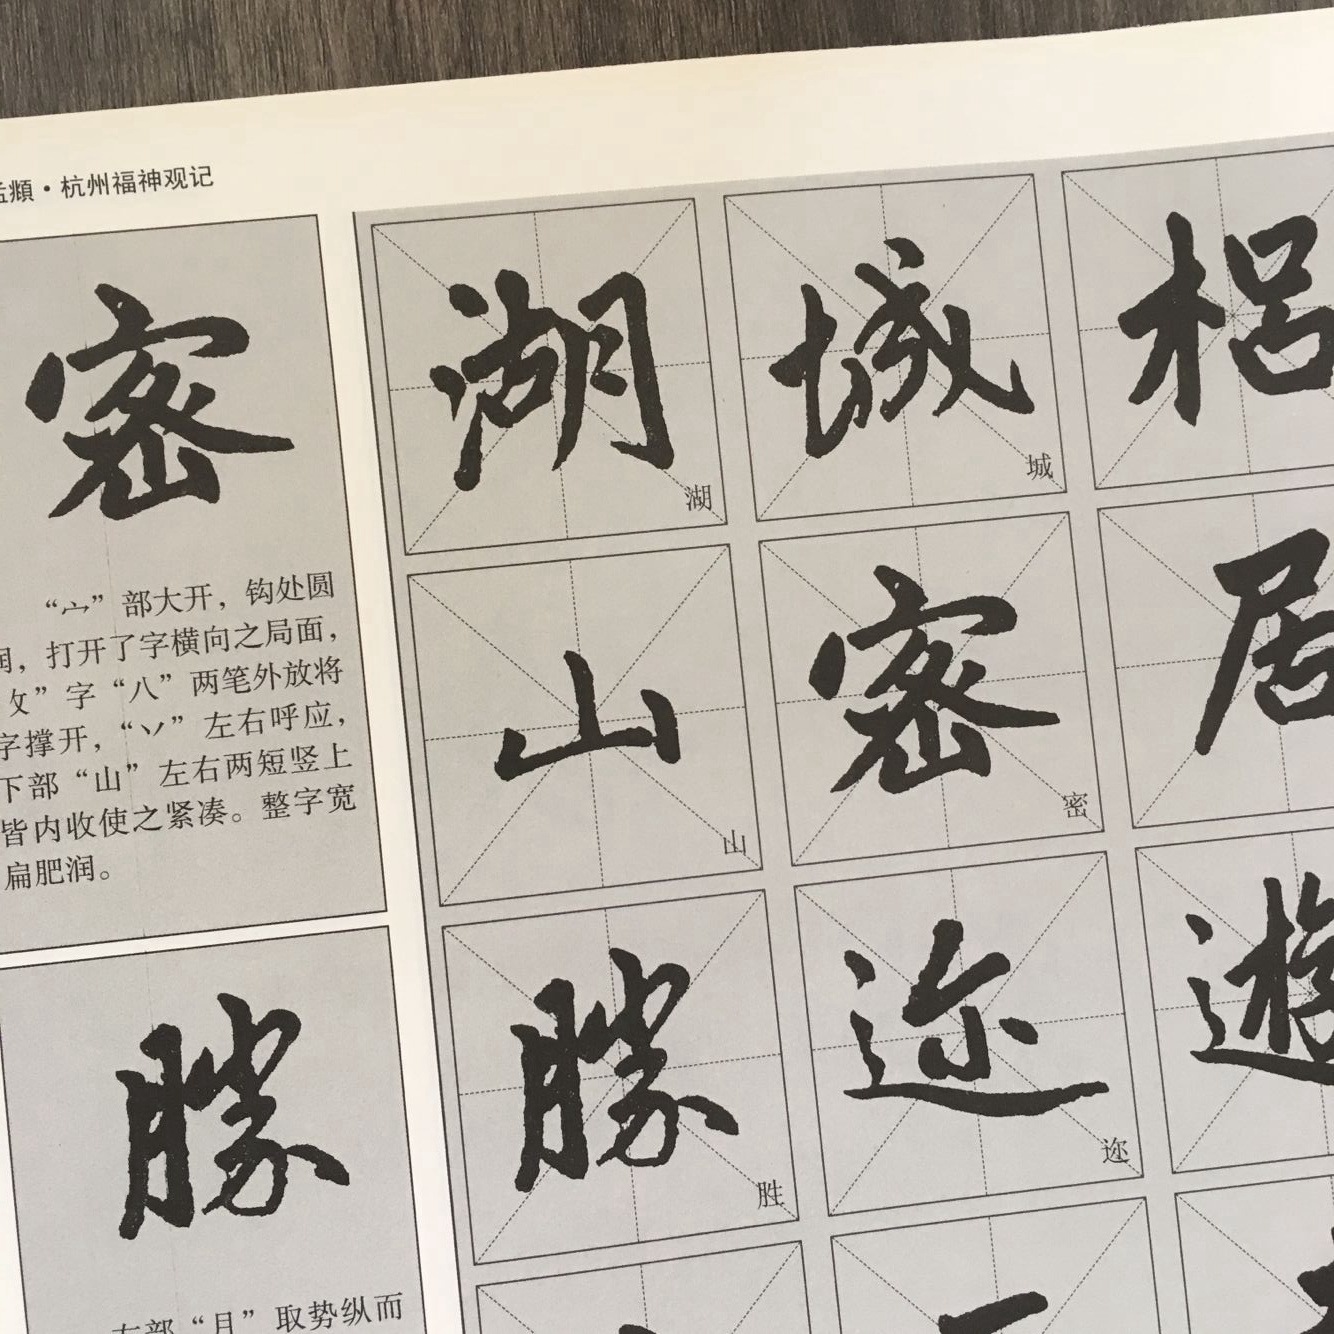 頫·杭州福神观记
密
“宀”部大开，钩处圆
润，打开了字横向之局面，
攵”字“八”两笔外放将
字撑开，“丷”左右呼应，
下部“山”左右两短竖上
皆内收使之紧凑。整字宽
扁肥润。
勝
左部“月”取势纵而
湖 城 梠
湖 城
山 密 居
山 密
勝 迩 遊
胜 迩